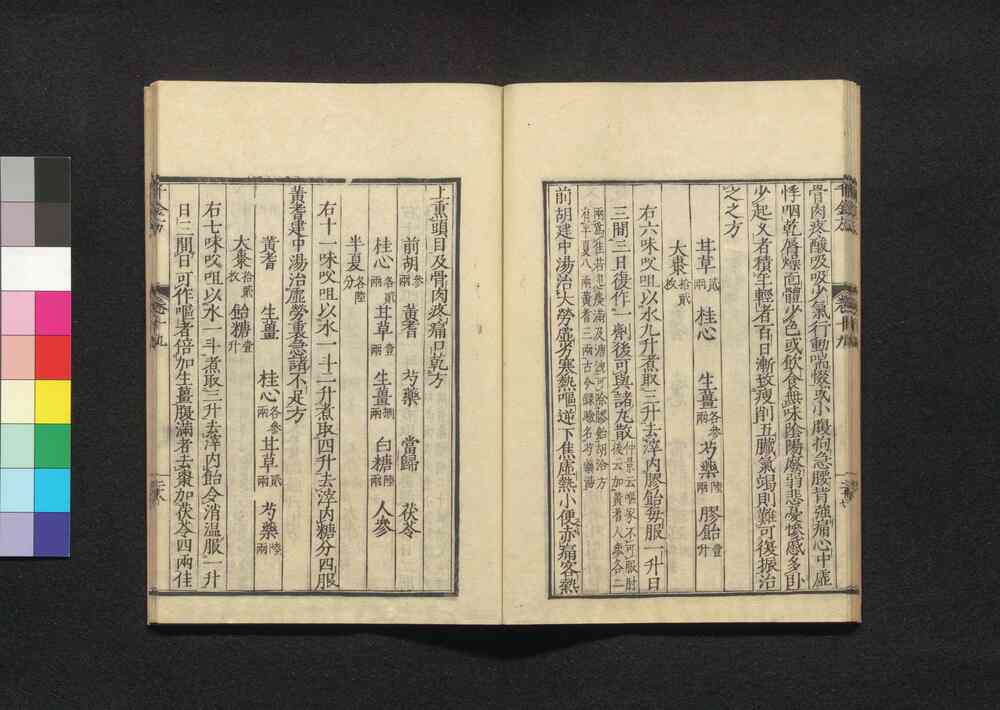 千金方
卷十九
骨肉疼酸吸吸少氣行動喘惙或小腹拘急腰背強痛心中虛
悸咽乾脣燥面體少色或飲食無味陰陽廢弱悲憂慘慼多臥
少起久者積年輕者百日漸致瘦削五臟氣竭則難可復振治
之之方
甘草貳兩 桂心 生薑各參兩 芍藥陸兩 膠飴壹升
大棗拾貳枚
右六味㕮咀以水九升煮取三升去滓內膠飴每服一升日
三間三日復作一劑後可與諸丸散仲景云嘔家不可服肘後云加黃耆人參各二
兩爲佳若患痰滿及溏泄可除膠飴胡洽方
有半夏六兩黃耆三兩古今錄驗名芍藥湯
前胡建中湯治大勞虛劣寒熱嘔逆下焦虛熱小便赤痛客熱
上熏頭目及骨肉疼痛口乾方
前胡參兩 黃耆 芍藥 當歸 茯苓
桂心各貳兩 甘草壹兩 生薑捌兩 白糖陸兩 人參
半夏各陸分
右十一味㕮咀以水一斗二升煮取四升去滓內糖分四服
黃耆建中湯治虛勞裏急諸不足方
黃耆 生薑 桂心各參兩 甘草貳兩 芍藥陸兩
大棗拾貳枚 飴糖壹升
右七味㕮咀以水一斗煮取三升去滓內飴令消溫服一升
日三間日可作嘔者倍加生薑腹滿者去棗加茯苓四兩佳
千金方
卷十九